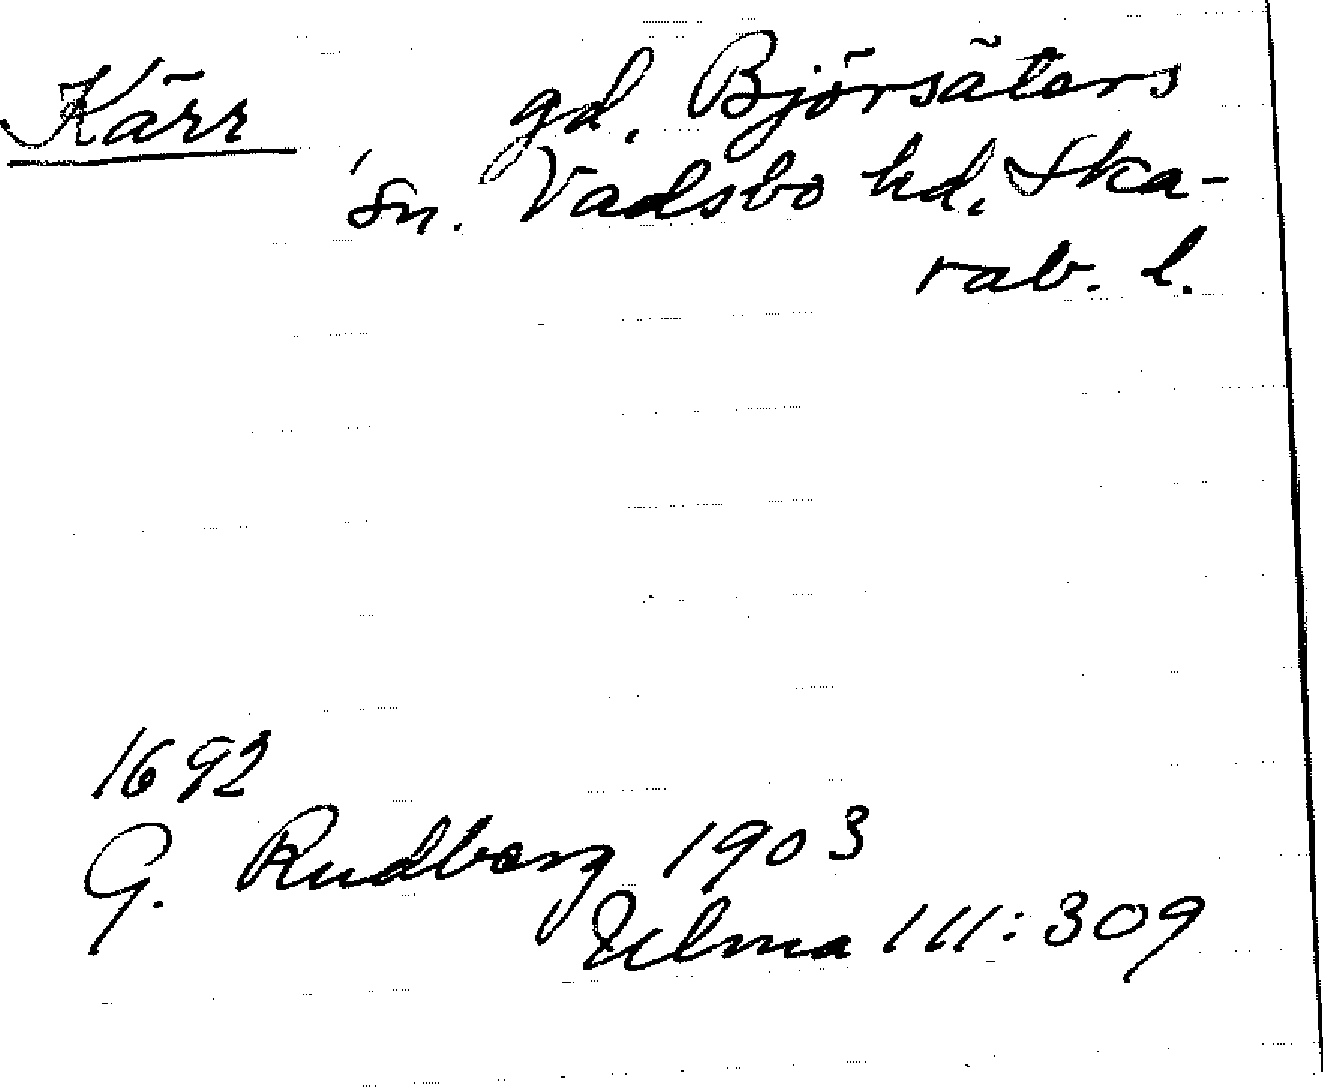 Kärr gd. Björsäters
sn. Vadsbo hd. Ska-
rab. l.
1692
G. Rudberg 1903
Ulma 111:309